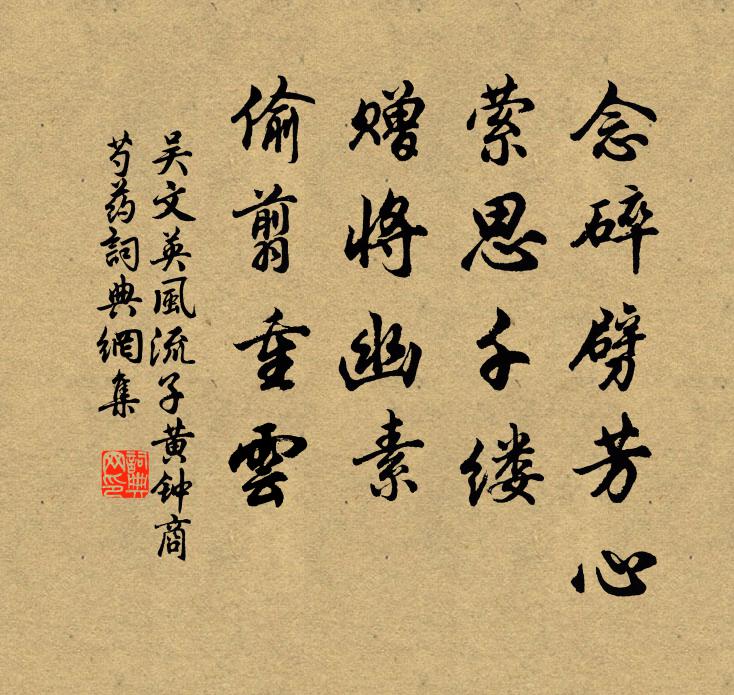 念碎劈芳心
萦思千缕
赠将幽素
偷翦重雲
吴文英風流子黄钟商
芍药詞典網集
詞典网印